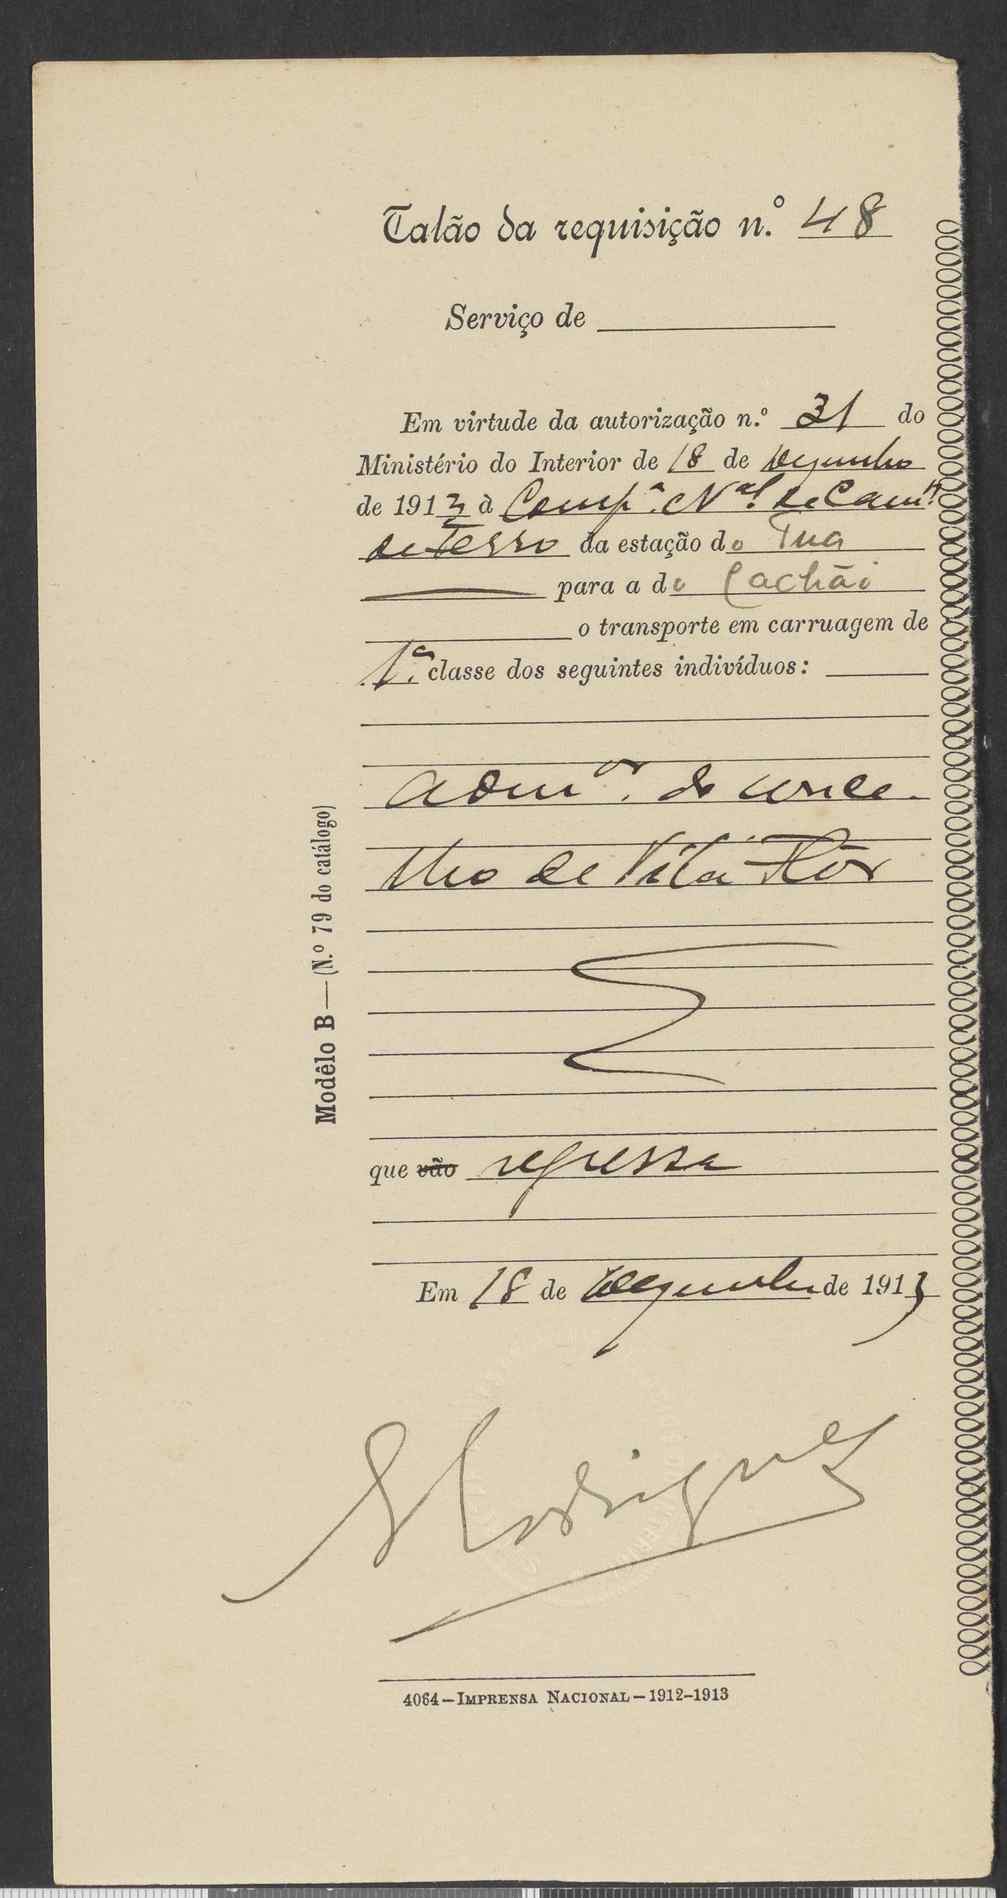 Talão da requisição n.º 48
Serviço de
Em virtude da autorização n.º 31 do
Ministério do Interior de 18 de Dezembro
de 1913 à Comp.ª N.al de Cam.os
de Ferro da estação do Tua
para a do Cachão
o transporte em carruagem de
1.ª classe dos seguintes indivíduos:
Adm.or do conce
lho de Vila Flôr
que vão regressa
Em 18 de Dezembro de 1913
Rodrigues
4064—IMPRENSA NACIONAL—1912-1913
Modêlo B—(N.º 79 do catálogo)